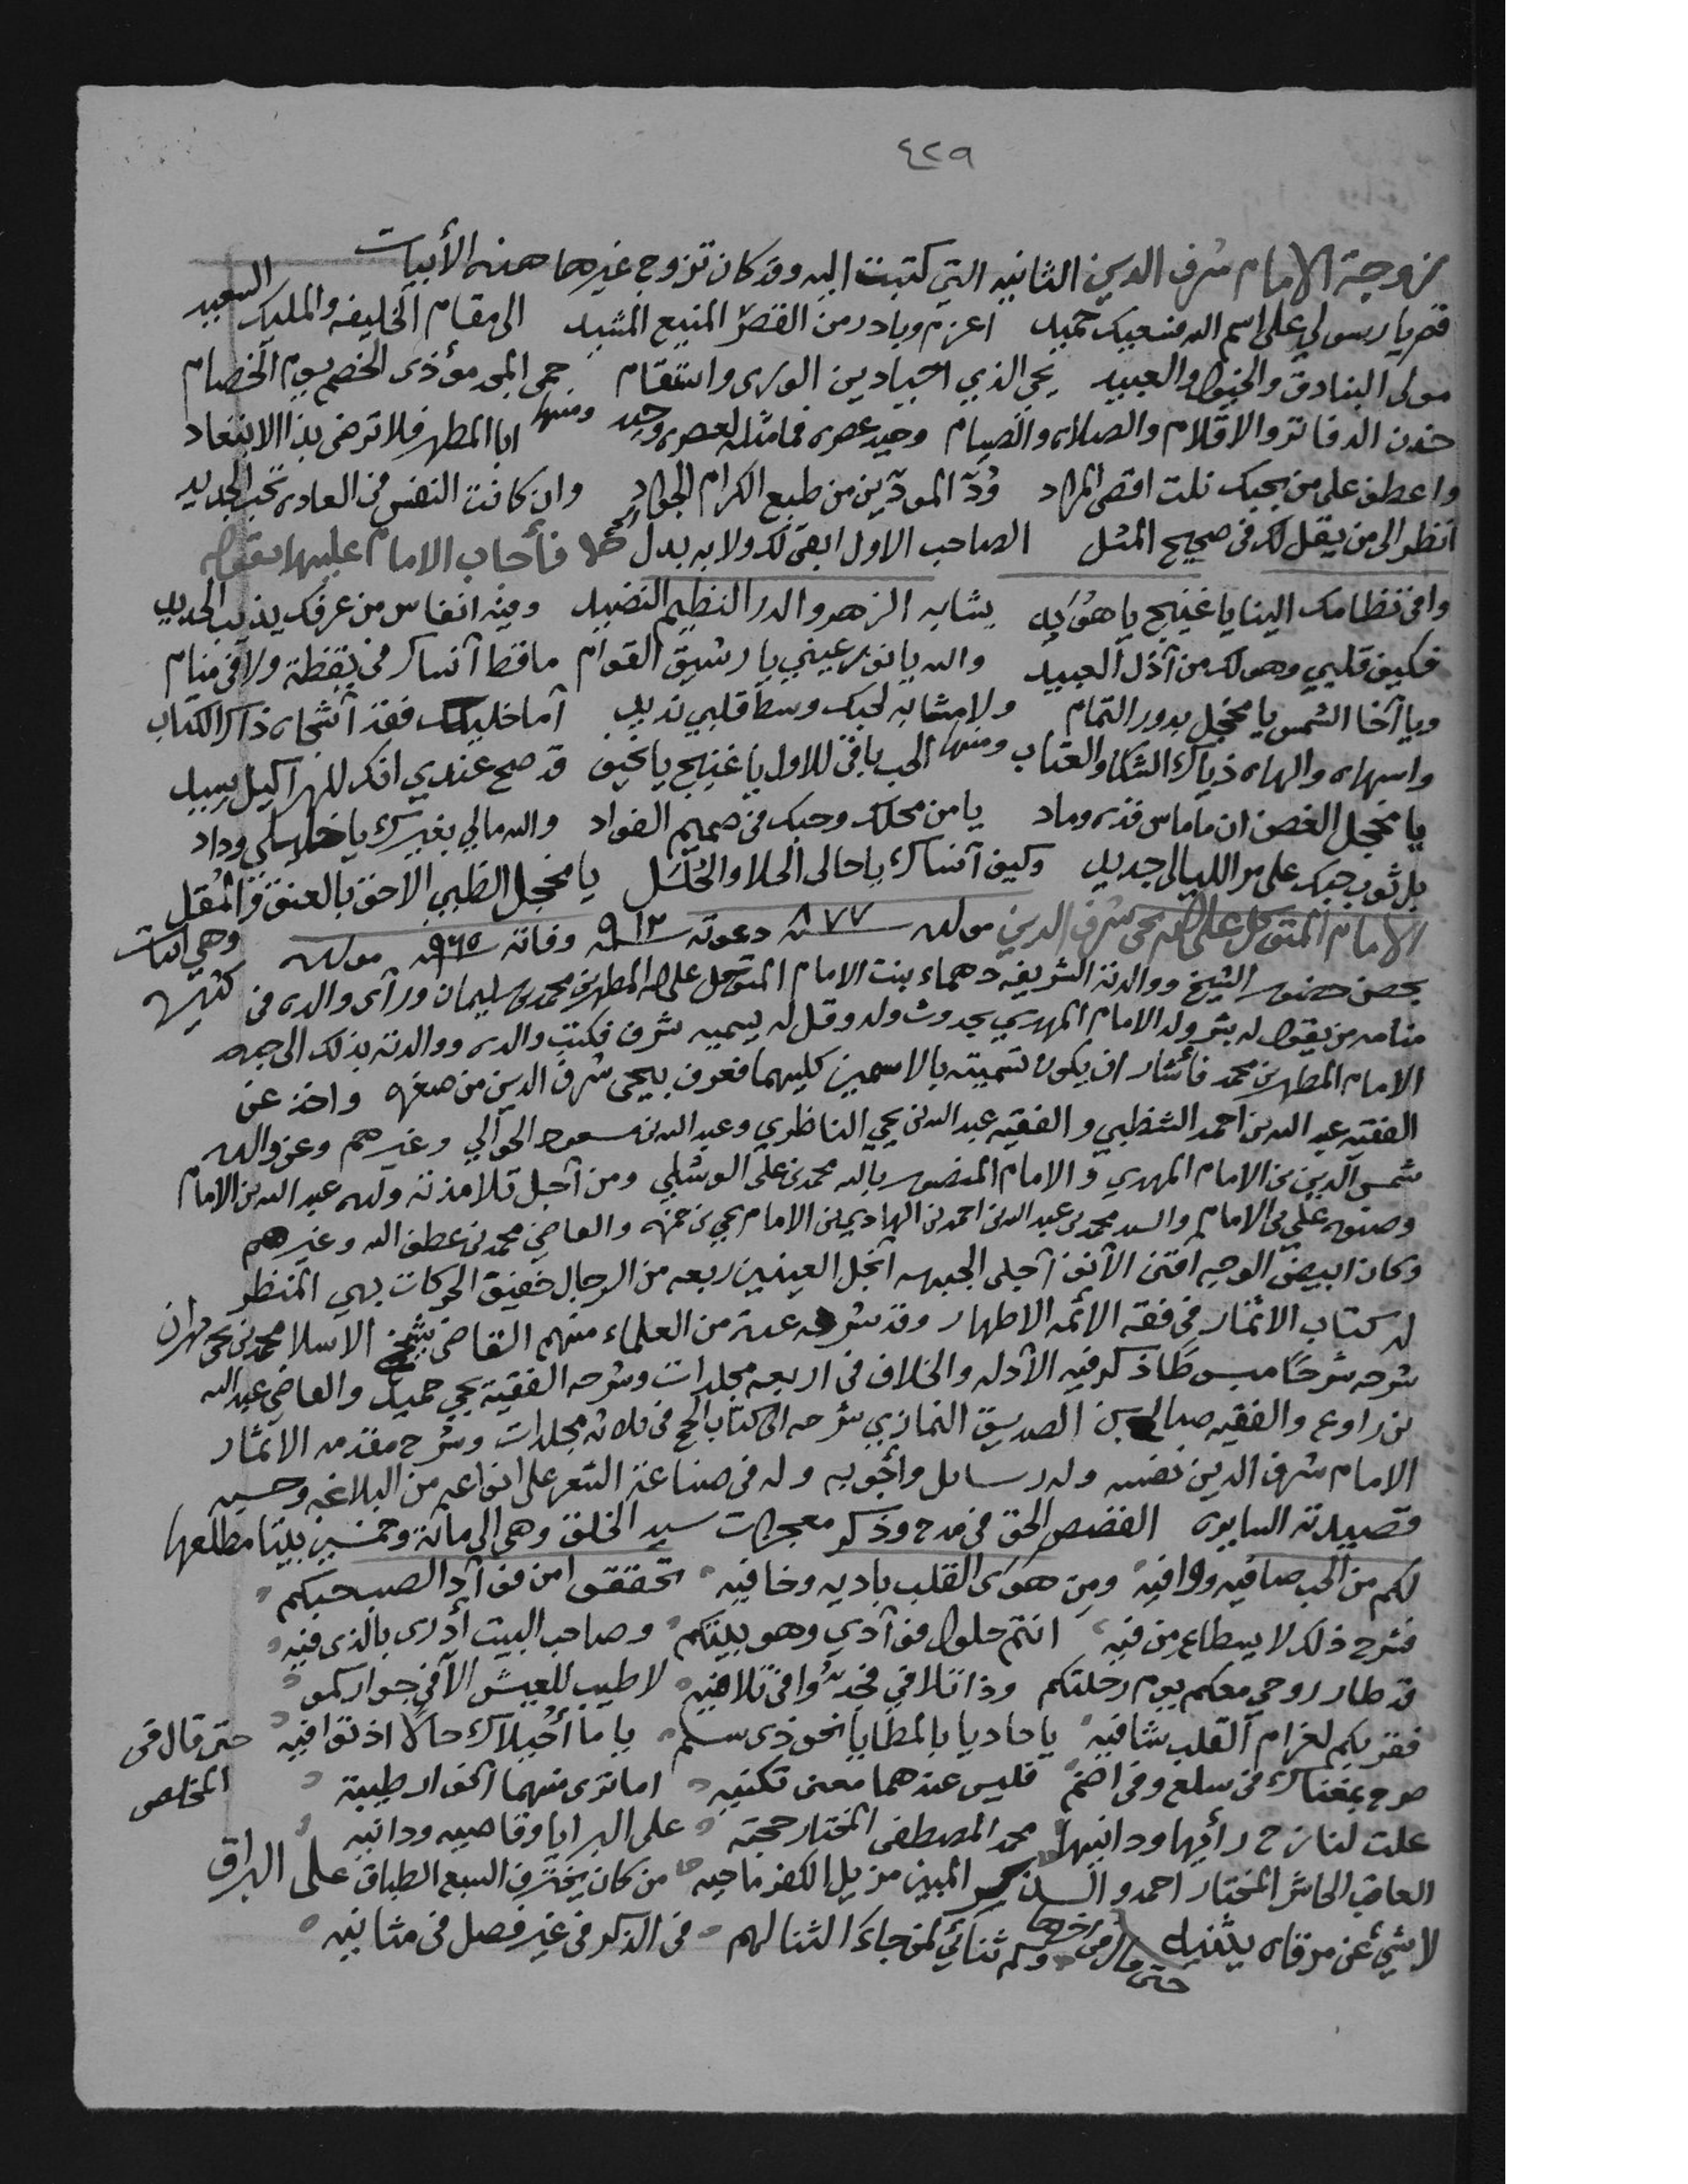 ٤٢٩
زوجة الامام شرف الدين الثانيه التي كتبت اليه وقد كان تزوج غيرها هذه الأبيات
قم يا رسولي على اسم الله فسعيك حميد اعزم وبادر من القصر المنيع المشيد الى مقام الخليفه والمليك السعيد
مولى البنادق والخيول والعبيد يحيى الذي الورى وانتقام حمى المجد مؤذى الخصم يوم الخصام
خدن الدفاتر والاقلام والصلاه والصيام وحيد عصره فما مثله لعصره وحيد ومنها ابا المطهر فلا ترضى بذا الابتعاد
واعطف على من يحبك نلت اقصى المراد ودّ المودّين من طبع الكرام الجواد وان كانت النفس في العاده تحب الجديد
انظر الى من يقل لك في صحيح المثل الصاحب الاول ابقى لك ولا به بدل فأجاب الامام عليها بقوله
وافى نظامك الينا يا غنيج يا يشابه الزهر والدر النظيم النضيد وفيه انفاس من عرفك يذيب الحديد
فكيف قلبي وهو لك من أذل العبيد والله يا نور عيني يا رشيق القوام ما قط آنساك في يقظة ولا في منام
ويا آخا الشمس يا مخجل بدور التمام ولا مشابه لحبك وسط قلبي نديد أما خليك فقد آشجاه ذاك الكتاب
واسهاه والهاه ذياك الشكا والعتاب ومنها الحب باقي للاول يا غنيج يا نحيف قد صح عندي انك
يا مخجل الغصن ان ما ماس قده وماد يا من محلك وحبك في صميم الفواد والله مالي بغيرك يا خليلي وداد
بل ثوب حبك على مر الليالي جديد وكيف آنساك يا حالى الحلا والحلل يا مخجل الظبي الاحوى بالعنق والمقل
الامام المتوكل على الله يحيى شرف الدين مولده ٨٧٧ دعوته ٩١٢ وفاته ٩٦٥ مولده وهي ابيات كثيره
بحصن حضور الشيخ ووالدته الشريفه دهماء بنت الامام المتوكل على الله المطهر بن محمد بن سليمان ورأى والده في
منامه من يقول له بشر ولد الامام المهدي بحدوث ولد وقل له يسميه شرف فكتب والده ووالدته بذلك الى جده
الامام المطهر بن محمد فأشار ان يكون تسميته بالاسمين كليهما فعرف بيحيى شرف الدين من صغره واخذ عن
الفقيه عبد الله بن احمد الشظبي والفقيه عبد الله بن يحيى الناظري وعبد الله بن مسعود الحوالي وغيرهم وعن والده
شمس الدين بن الامام المهدي والامام المنصور بالله محمد بن علي الوشلي ومن آجل تلامذته ولده عبد الله بن الامام
وصنوه علي بن الامام والسيد محمد بن عبد الله بن احمد بن الهادي بن الامام يحيى بن حمزه والقاضي محمد بن عطف الله وغيرهم
وكان ابيض الوجه اقنى الآنف آجلى الجبهه آنجل العينين ربعه من الرجال خفيف الحركات بهي المنظر
له كتاب الاثمار في فقه الائمه الاطهار وقد شرحه عدة من العلماء منهم القاضي شيخ الاسلام محمد بن يحيى بهران
شرحه شرحًا مبسوطًا ذكر فيه الآدله والخلاف في اربعه مجلدات وشرحه الفقيه يحيى حميد والقاضي عبد الله
بن راوع والفقيه صالح بن الصديق النمازي شرحه الى كتاب الحج في ثلاثه مجلدات وشرح مقدمه الاثمار
الامام شرف الدين نفسه وله رسائل وأجوبه وله في صناعة الشعر على انواعه من البلاغه وحسبه
قصيدته السايره القصص الحق في مدح وذكر معجزات سيد الخلق وهي الى مائة وخمسين بيتا مطلعها
لكم من الحب صافيه ووافيه ومن هوى القلب باديه وخافيه تحققوا من فؤآد الصب حبكم
فشرح ذلك لا يسطاع من فيه انتم حلول فؤآدي وهو بيتكم وصاحب البيت أدرى بالذى فيه
قد طار روحي معكم يوم رحلتكم وذا تلافي فجدّوا في تلافيه لا طيب للعيش الآ في جواركمو
فقربكم لغرام القلب شافيه يا حاديا بالمطايا نحو ذى سلم يا ما أحيلاك حالا اذ توافيه حتى قال في المخلص
صرح بمغناك في سلع وفي اضم فليس عندهما معنى تكنيه اما ترى منهما انوار طيبة
علت لنازح رأيها ودانيها محمد المصطفى المختار حجته على البرايا وقاصيه ودانيه
العاقب الحاشر المختار احمد والمبين مزيل الكفر ماحيه من كان يخترق السبع الطباق على البراق
لا شيئ عن مرقاه يثنيه حتى قال في اخرها وكم ثنائي لمن جاءَ الثنا لهم في الذكر في غير فصل في مثانيه